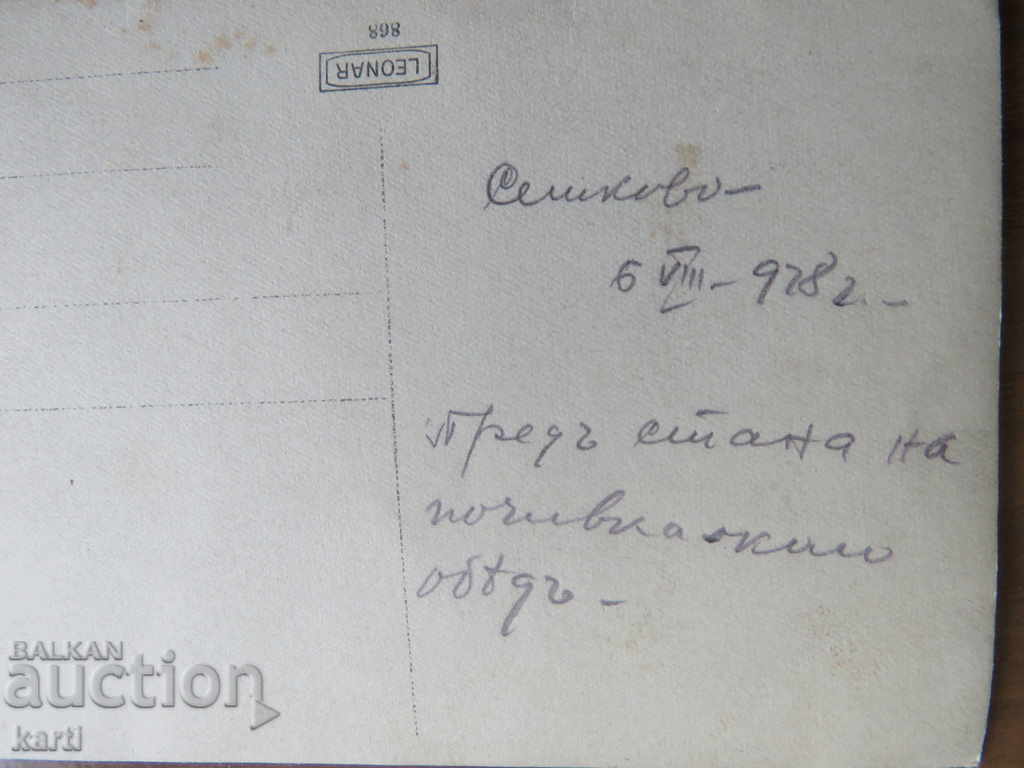 868
LEONAR
Селиково —
6 VIII – 928 г. –
Предъ стана на
почивка около
обѣдъ –
BALKAN
auction
karti